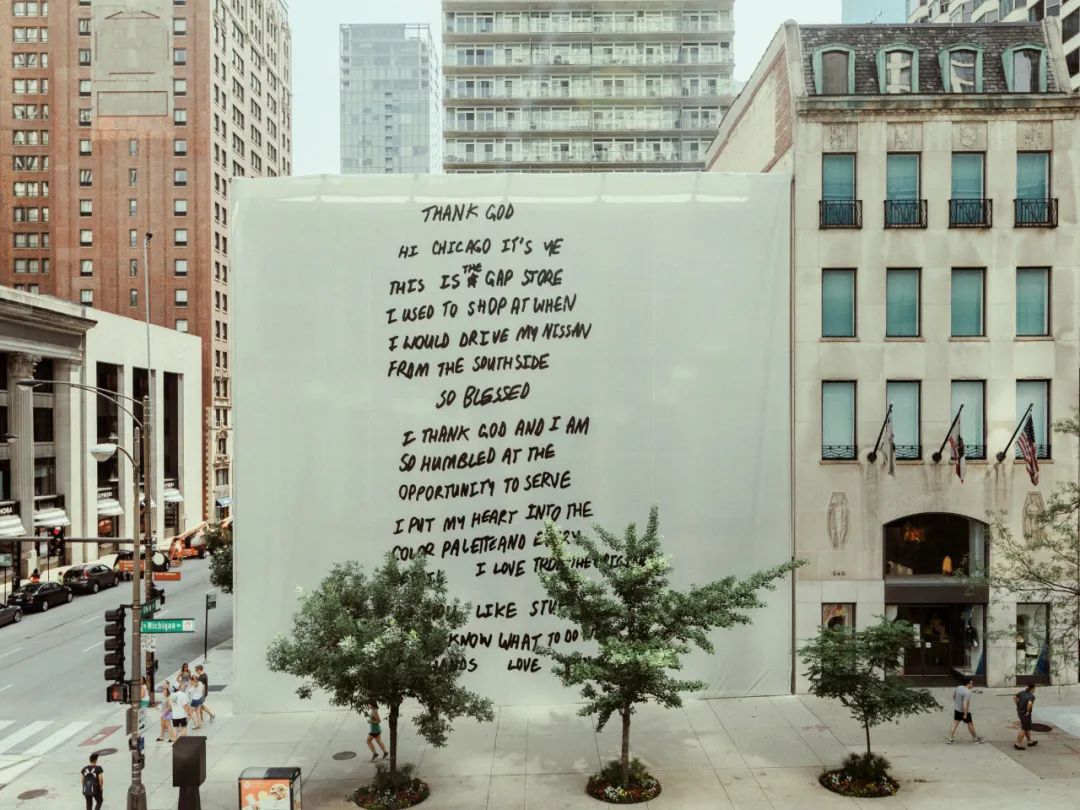 THANK GOD
HI CHICAGO IT'S YE
THIS IS THE GAP STORE
I USED TO SHOP AT WHEN
I WOULD DRIVE MY NISSAN
FROM THE SOUTHSIDE
SO BLESSED
I THANK GOD AND I AM
SO HUMBLED AT THE
OPPORTUNITY TO SERVE
I PUT MY HEART INTO THE
COLOR PALETTE AND
I LOVE
LIKE
KNOW WHAT TO DO
LOVE
Michigan
545